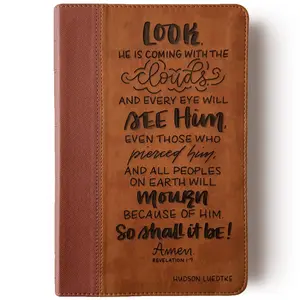 LOOK,
HE IS COMING WITH THE
clouds,
AND EVERY EYE WILL
SEE Him,
EVEN THOSE WHO
pierced him,
AND ALL PEOPLES
ON EARTH WILL
MOURN
BECAUSE OF HIM.
So shall it be!
Amen.
REVELATION 1:7
HUDSON LUEDTKE